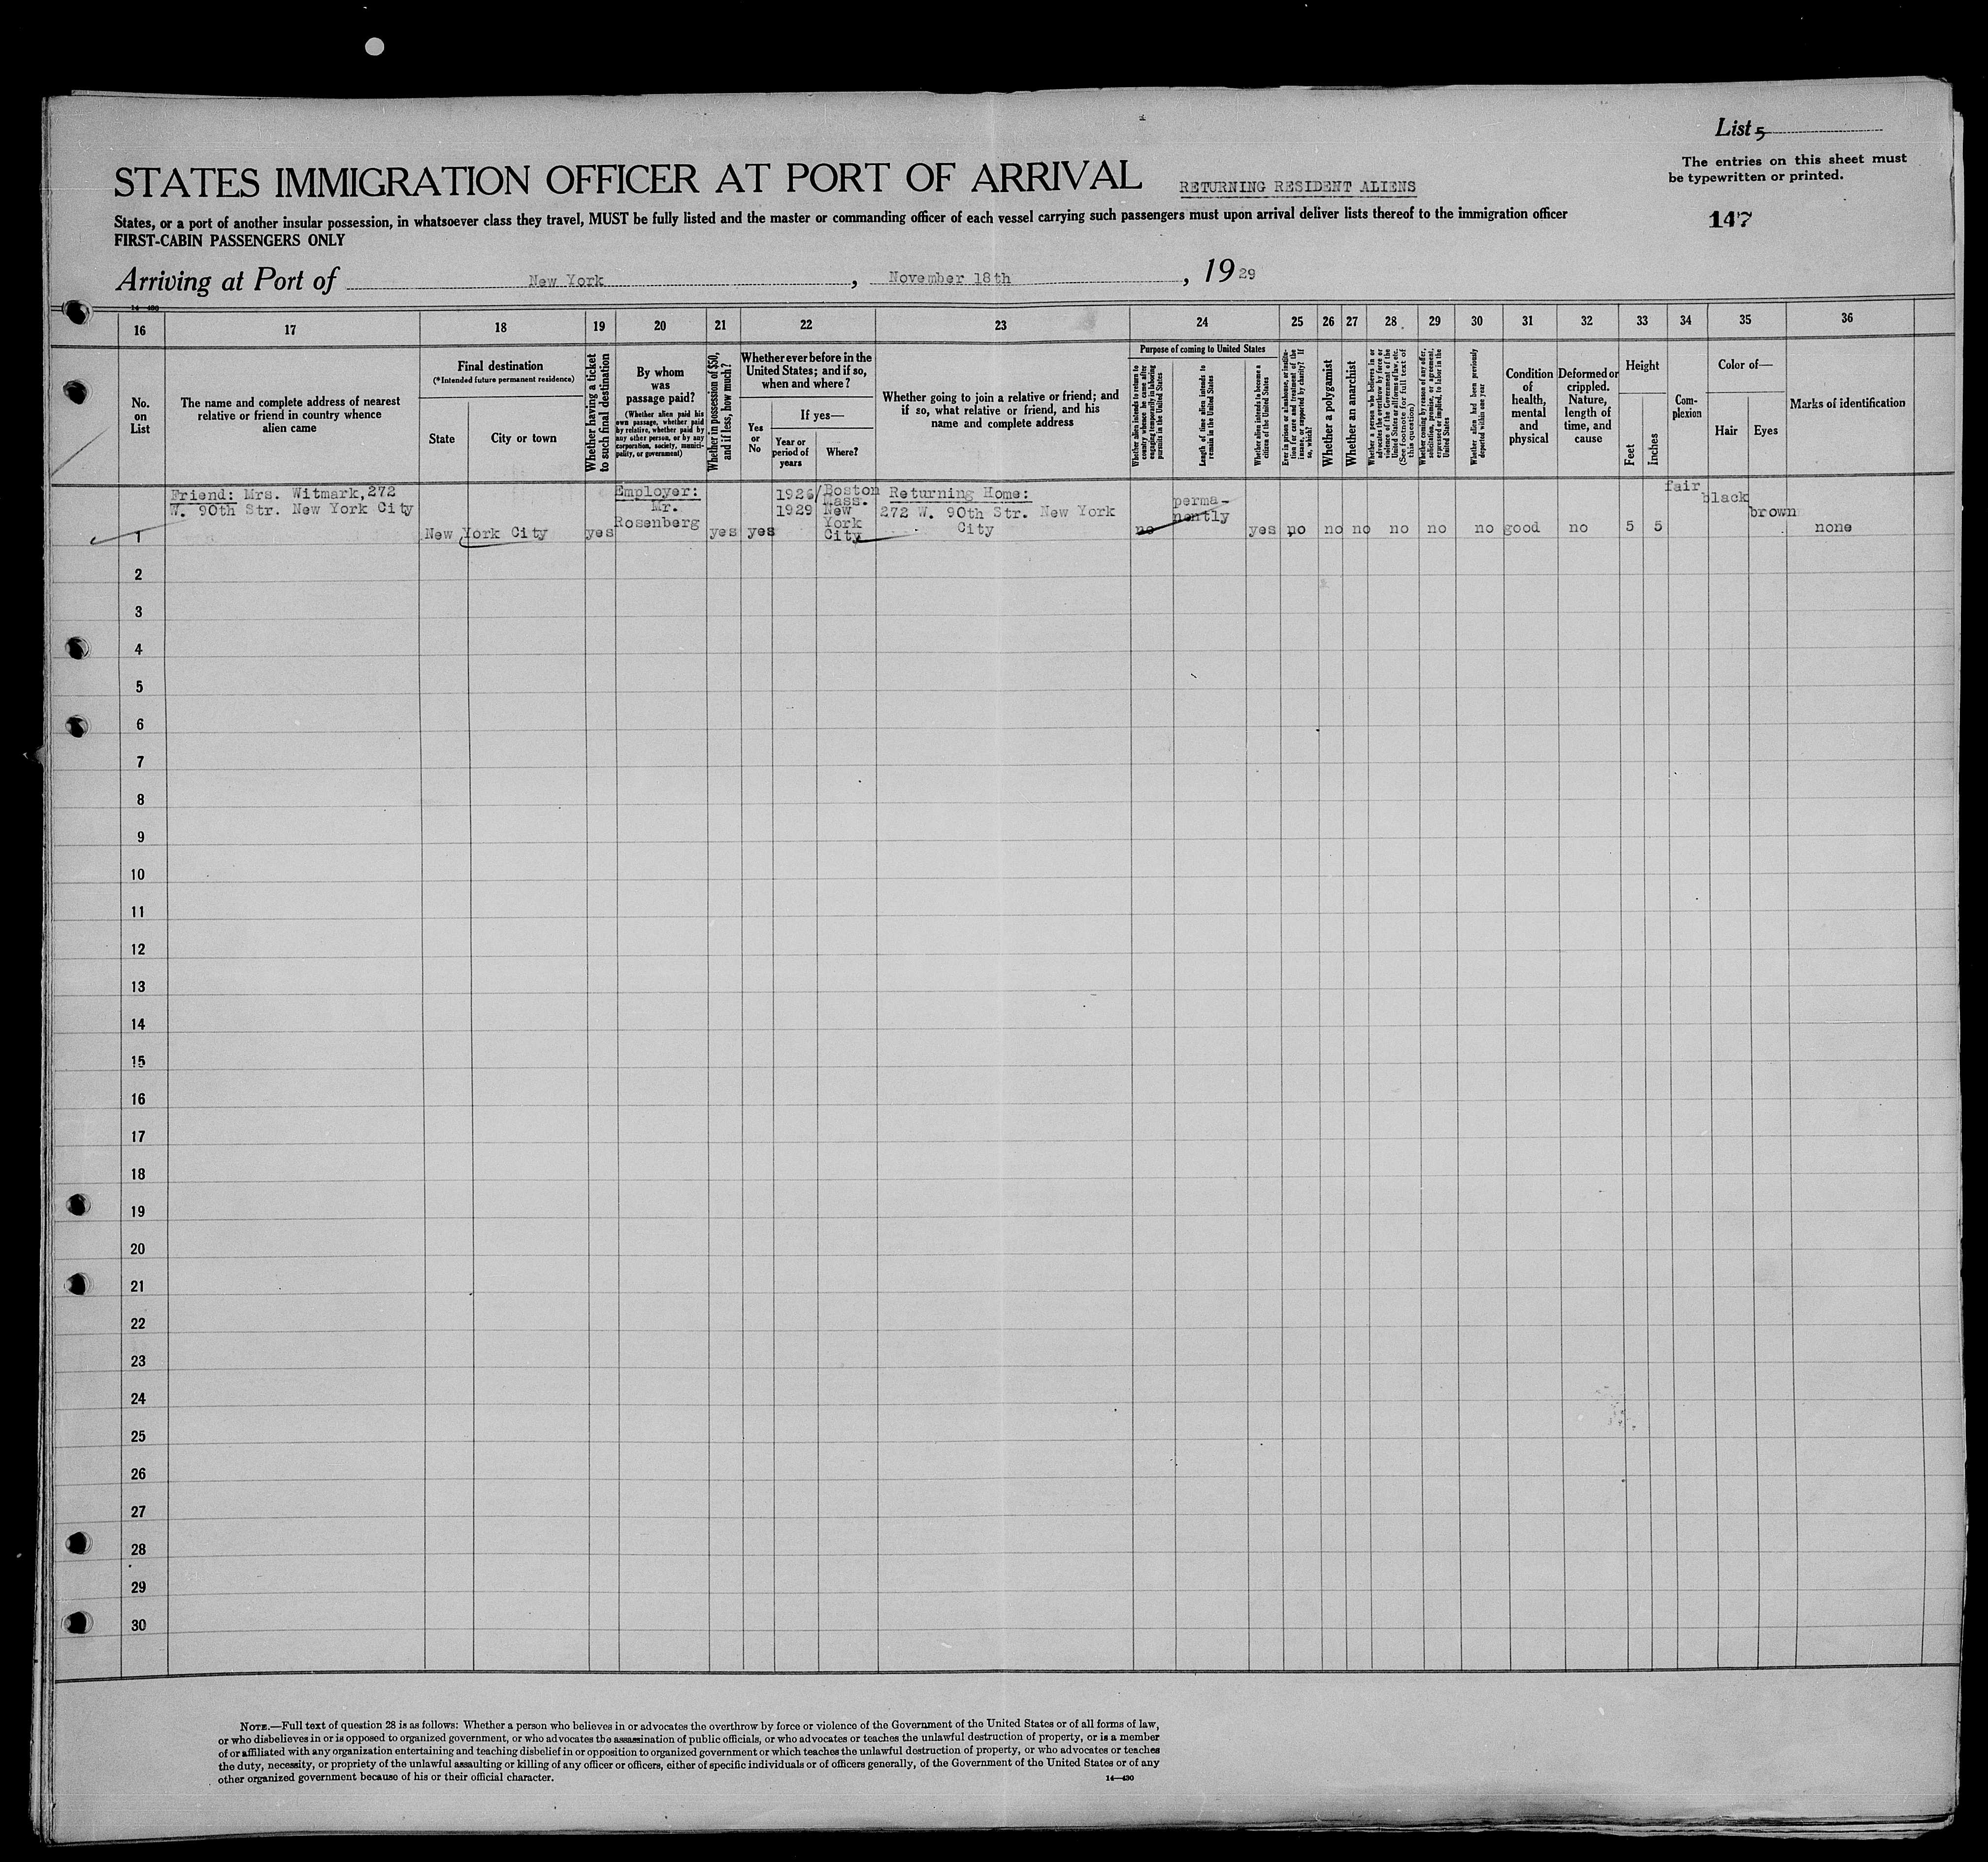 List 5
The entries on this sheet must
be typewritten or printed.
STATES IMMIGRATION OFFICER AT PORT OF ARRIVAL RETURNING RESIDENT ALIENS
147
States, or a port of another insular possession, in whatsoever class they travel, MUST be fully listed and the master or commanding officer of each vessel carrying such passengers must upon arrival deliver lists thereof to the immigration officer
FIRST-CABIN PASSENGERS ONLY
Arriving at Port of New York, November 18th, 1929
14—430
16 17 18 19 20 21 22 23 24 25 26 27 28 29 30 31 32 33 34 35 36
No.
on
List
The name and complete address of nearest
relative or friend in country whence
alien came
Final destination
(*Intended future permanent residence)
State
City or town
Whether having a ticket
to such final destination
By whom
was
passage paid?
(Whether alien paid his
own passage, whether paid
by relative, whether paid by
any other person, or by any
corporation, society, munici-
pality, or government)
Whether in possession of $50,
and if less, how much?
Whether ever before in the
United States; and if so,
when and where?
Yes
or
No
If yes—
Year or
period of
years
Where?
Whether going to join a relative or friend; and
if so, what relative or friend, and his
name and complete address
Purpose of coming to United States
Whether alien intends to return to
country whence he came after
engaging temporarily in laboring
pursuits in the United States
Length of time alien intends to
remain in the United States
Whether alien intends to become a
citizen of the United States
Ever in prison or almshouse, or institu-
tion for care and treatment of the
insane, or supported by charity? If
so, which?
Whether a polygamist
Whether an anarchist
Whether a person who believes in or
advocates the overthrow by force or
violence of the Government of the
United States or all forms of law, etc.
(See footnote for full text of
this question)
Whether coming by reason of any offer,
solicitation, promise, or agreement,
expressed or implied, to labor in the
United States
Whether alien had been previously
deported within one year
Condition
of
health,
mental
and
physical
Deformed or
crippled.
Nature,
length of
time, and
cause
Height
Feet
Inches
Com-
plexion
Color of—
Hair
Eyes
Marks of identification
1
Friend: Mrs. Witmark, 272
W. 90th Str. New York City
New York City
yes
Employer:
Mr.
Rosenberg
yes
yes
1926/
1929
Boston
Mass.
New
York
City
Returning Home:
272 W. 90th Str. New York
City
no
perma-
nently
yes
no
no
no
no
no
no
good
no
5
5
fair
black
brown
none
2
3
4
5
6
7
8
9
10
11
12
13
14
15
16
17
18
19
20
21
22
23
24
25
26
27
28
29
30
NOTE.—Full text of question 28 is as follows: Whether a person who believes in or advocates the overthrow by force or violence of the Government of the United States or of all forms of law,
or who disbelieves in or is opposed to organized government, or who advocates the assassination of public officials, or who advocates or teaches the unlawful destruction of property, or is a member
of or affiliated with any organization entertaining and teaching disbelief in or opposition to organized government or which teaches the unlawful destruction of property, or who advocates or teaches
the duty, necessity, or propriety of the unlawful assaulting or killing of any officer or officers, either of specific individuals or of officers generally, of the Government of the United States or of any
other organized government because of his or their official character.
14—430